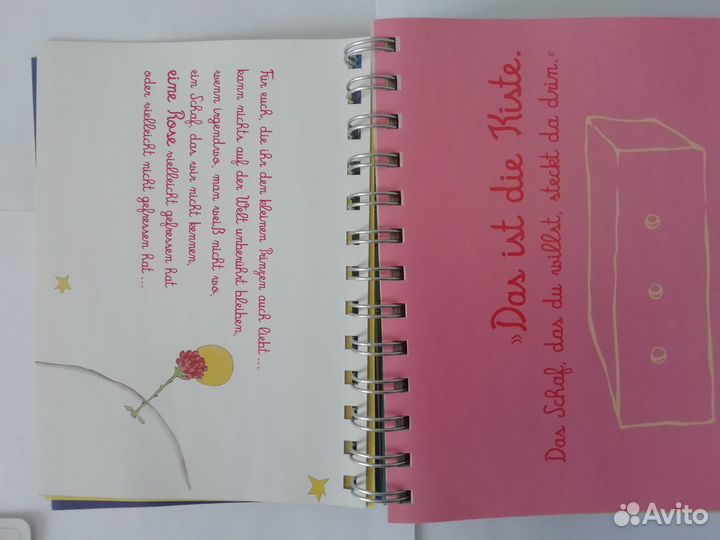 Für euch, die ihr den kleinen Prinzen auch liebt...
kann nichts auf der Welt unberührt bleiben,
wenn irgendwo, man weiß nicht wo,
ein Schaf, das wir nicht kennen,
eine Rose vielleicht gefressen hat
oder vielleicht nicht gefressen hat...
»Das ist die Kiste.
Das Schaf, das du willst, steckt da drin.«
Avito